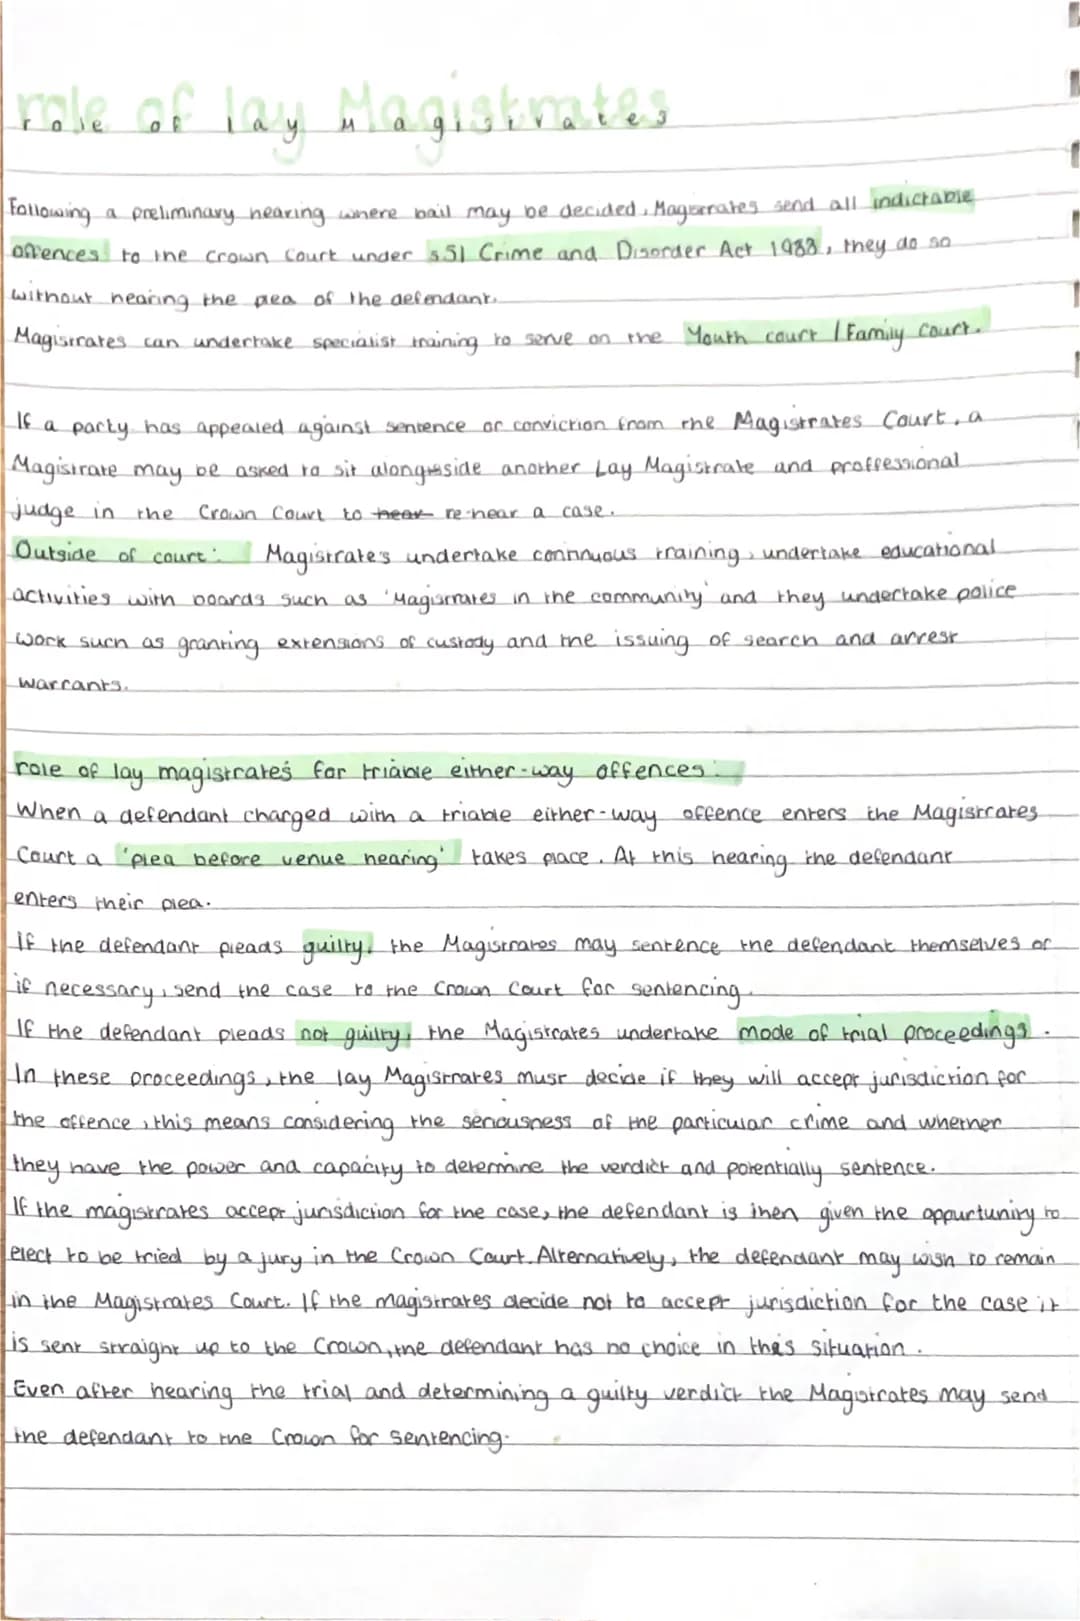 role of lay Magistrates
role of lay Magistrates
Following a preliminary hearing where bail may be decided, Magistrates send all indictable
offences to the Crown Court under s51 Crime and Disorder Act 1988, they do so
without hearing the plea of the defendant.
Magistrates can undertake specialist training to serve on the Youth court / Family Court.
If a party has appealed against sentence or conviction from the Magistrates Court, a
Magistrate may be asked to sit alongside another Lay Magistrate and proffessional
judge in the Crown Court to hear re-hear a case.
Outside of court: Magistrate's undertake continuous training, undertake educational
activities with boards such as 'Magistrates in the community' and they undertake police
work such as granting extensions of custody and the issuing of search and arrest
warrants.
role of lay magistrates for triable either-way offences:
When a defendant charged with a triable either-way offence enters the Magistrates
Court a 'plea before venue hearing' takes place. At this hearing the defendant
enters their plea.
If the defendant pleads guilty, the Magistrates may sentence the defendant themselves or
if necessary, send the case to the Crown Court for sentencing.
If the defendant pleads not guilty, the Magistrates undertake mode of trial proceedings.
In these proceedings, the lay Magistrates must decide if they will accept jurisdiction for
the offence, this means considering the seriousness of the particular crime and whether
they have the power and capacity to determine the verdict and potentially sentence.
If the magistrates accept jurisdiction for the case, the defendant is then given the oppurtunity to
elect to be tried by a jury in the Crown Court. Alternatively, the defendant may wish to remain
in the Magistrates Court. If the magistrates decide not to accept jurisdiction for the case it
is sent straight up to the Crown, the defendant has no choice in this situation.
Even after hearing the trial and determining a guilty verdict the Magistrates may send
the defendant to the Crown for sentencing.